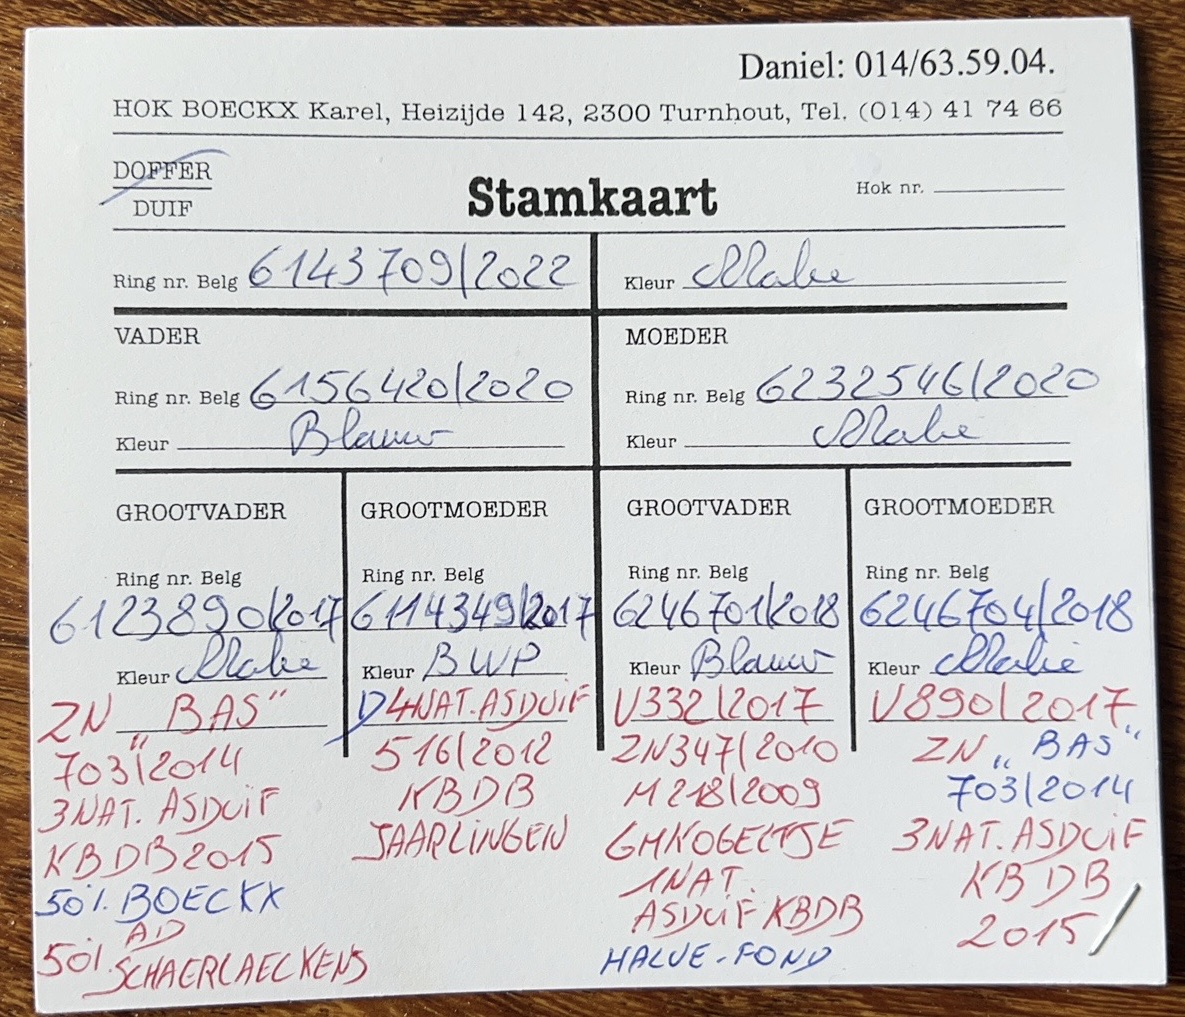 Daniel: 014/63.59.04.
HOK BOECKX Karel, Heizijde 142, 2300 Turnhout, Tel. (014) 41 74 66
DOFFER
DUIF
Stamkaart
Hok nr.
Ring nr. Belg 6143709/2022
Kleur
VADER
Ring nr. Belg 6156420/2020
Kleur Blauw
MOEDER
Ring nr. Belg 6232546/2020
Kleur
GROOTVADER
Ring nr. Belg
6123890/2017
Kleur
ZN "BAS"
703/2014
3NAT. ASDUIF
KBDB2015
50%. BOECKX
AD
50% SCHAERLAECKENS
GROOTMOEDER
Ring nr. Belg
6114349/2017
Kleur BWP
D4NAT.ASDUIF
516/2012
KBDB
JAARLINGEN
GROOTVADER
Ring nr. Belg
6246701/2018
Kleur Blauw
V332/2017
ZN347/2010
M218/2009
1NAT.
ASDUIF KBDB
HALVE-FOND
GROOTMOEDER
Ring nr. Belg
6246704/2018
Kleur
V890/2017
ZN "BAS"
703/2014
3NAT. ASDUIF
KBDB
2015